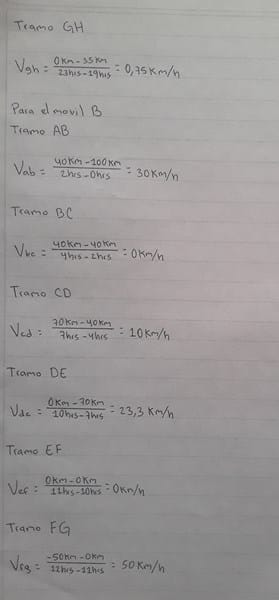 Tramo GH
Vgh = 0Km - 35Km / 23hrs - 19hrs = 0,75Km/h
Para el movil B
Tramo AB
Vab = 40Km - 100Km / 2hrs - 0hrs = 30Km/h
Tramo BC
Vbc = 40Km - 40Km / 4hrs - 2hrs = 0Km/h
Tramo CD
Vcd = 70Km - 40Km / 7hrs - 4hrs = 10Km/h
Tramo DE
Vde = 0Km - 70Km / 10hrs - 7hrs = 23,3 Km/h
Tramo EF
Vef = 0Km - 0Km / 11hrs - 10hrs = 0Km/h
Tramo FG
Vfg = -50Km - 0Km / 12hrs - 11hrs = 50Km/h